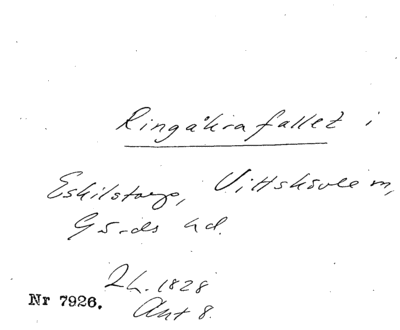 Ringåkrafallet i
Eskilstorp, Vittskövle m,
Gärds hd.
2 L. 1828
Ant 8.
Nr 7926.